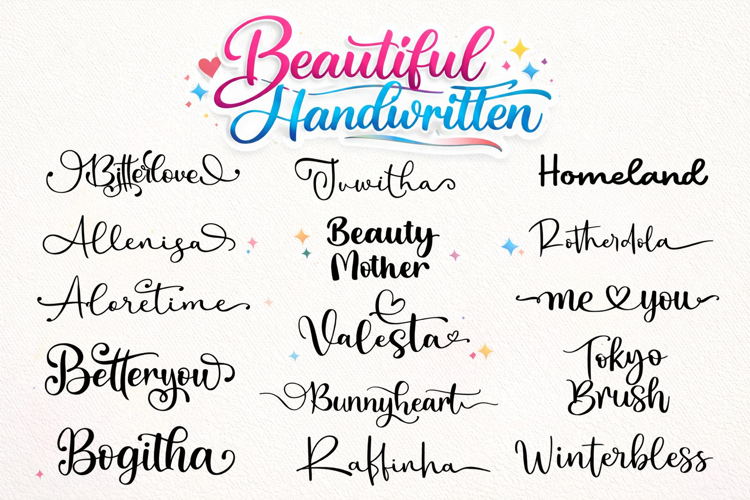 Beautiful
Handwritten
Bitterlove
Allenisa
Aloretime
Betteryou
Bogitha
Tuwitha
Beauty
Mother
Valesta
Bunnyheart
Raffinha
Homeland
Rotherdola
me you
Tokyo
Brush
Winterbless